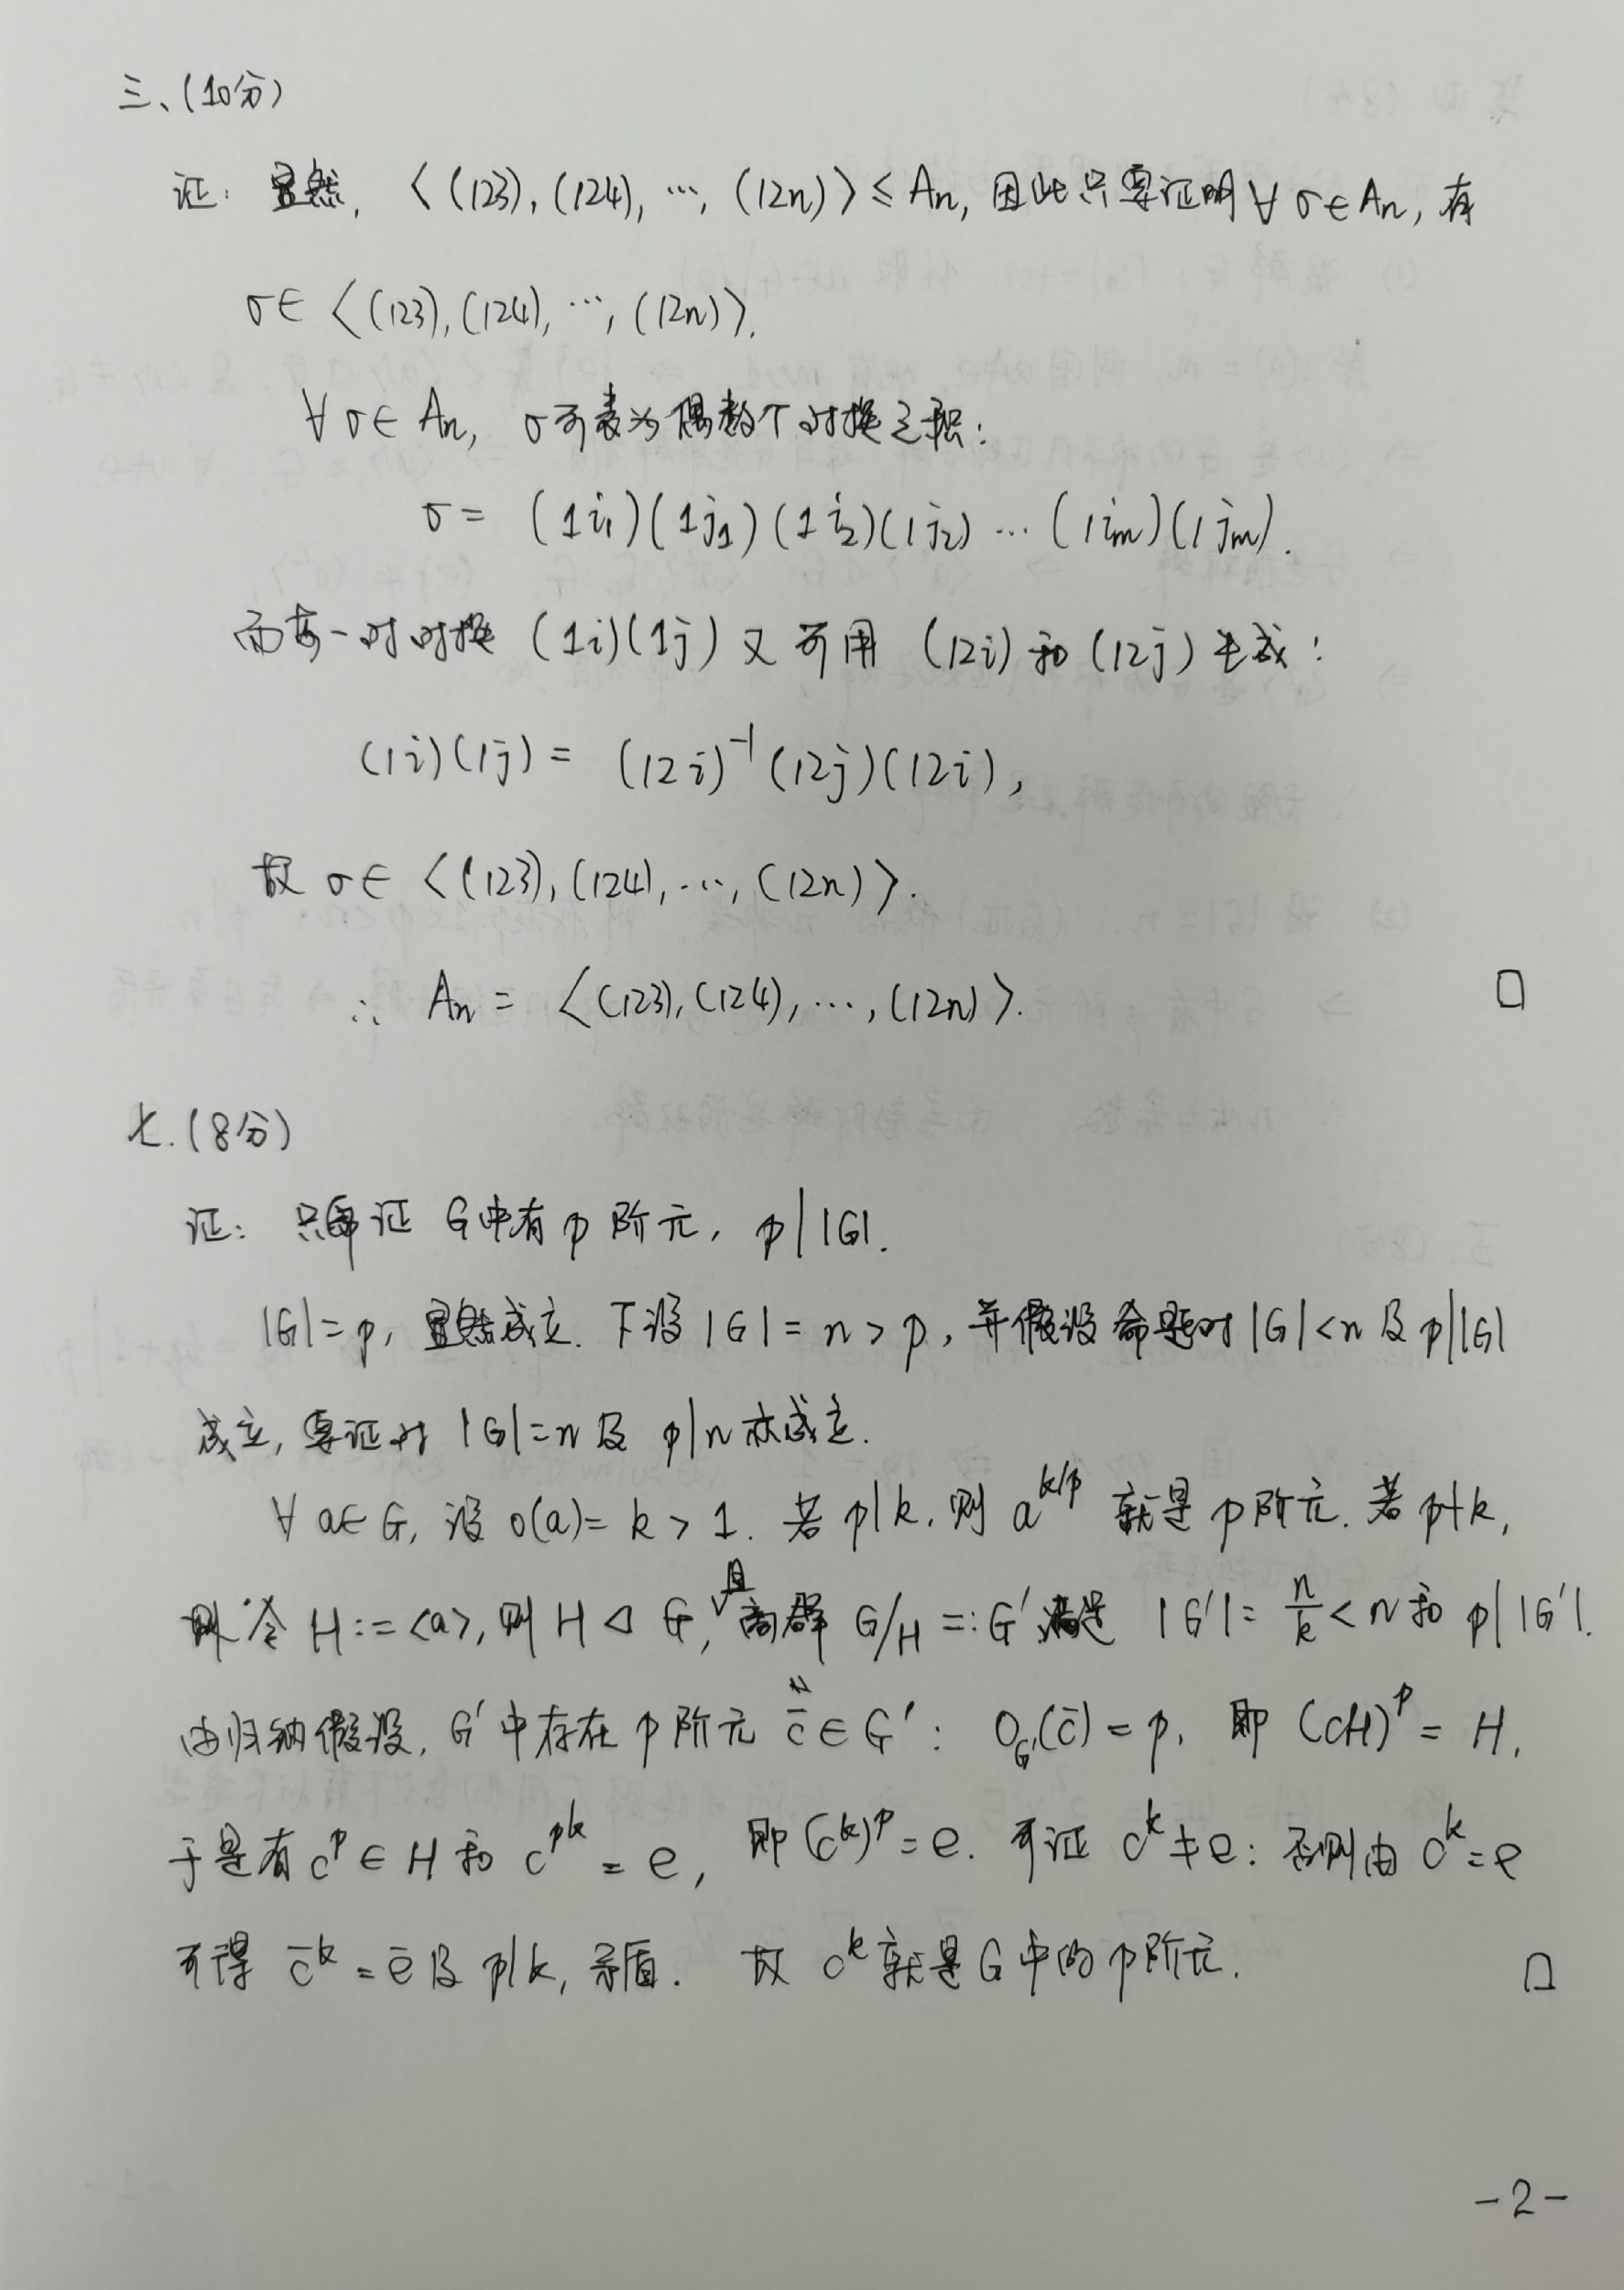 三、(10分)
证: 显然, ⟨(123), (124), ⋯, (12n)⟩ ≤ Aₙ, 因此只要证明 ∀ σ∈Aₙ, 有
σ∈ ⟨(123), (124), ⋯, (12n)⟩.
∀ σ∈ Aₙ, σ可表为偶数个对换之积:
σ = (1i₁)(1j₁)(1i₂)(1j₂) ⋯ (1iₘ)(1jₘ).
而每一对对换 (1i)(1j) 又可用 (12i) 和 (12j) 生成:
(1i)(1j) = (12i)⁻¹(12j)(12i),
故 σ∈ ⟨(123), (124), ⋯, (12n)⟩.
∴ Aₙ = ⟨(123), (124), ⋯, (12n)⟩. □
七.(8分)
证: 只需证 G中有 p 阶元, p | |G|.
|G|=p, 显然成立. 下设 |G| = n > p, 并假设命题对 |G|<n 及 p||G|
成立, 要证对 |G|=n 及 p|n 亦成立.
∀ a∈G, 设 o(a)= k > 1. 若 p|k, 则 a^{k/p} 就是 p 阶元. 若 p∤k,
则令 H:=<a>, 则 H ◁ G, 且商群 G/H =: G′ 满足 |G′| = n/k < n 和 p| |G′|.
由归纳假设, G′中存在 p 阶元 c̄ ∈ G′ : O_{G′}(c̄) = p, 即 (cH)^p = H,
于是有 c^p ∈ H 和 c^{pk} = e, 即 (c^k)^p = e. 可证 c^k ≠ e: 否则由 c^k = e
可得 c̄^k = ē 及 p|k, 矛盾. 故 c^k 就是 G 中的 p 阶元. □
-2-